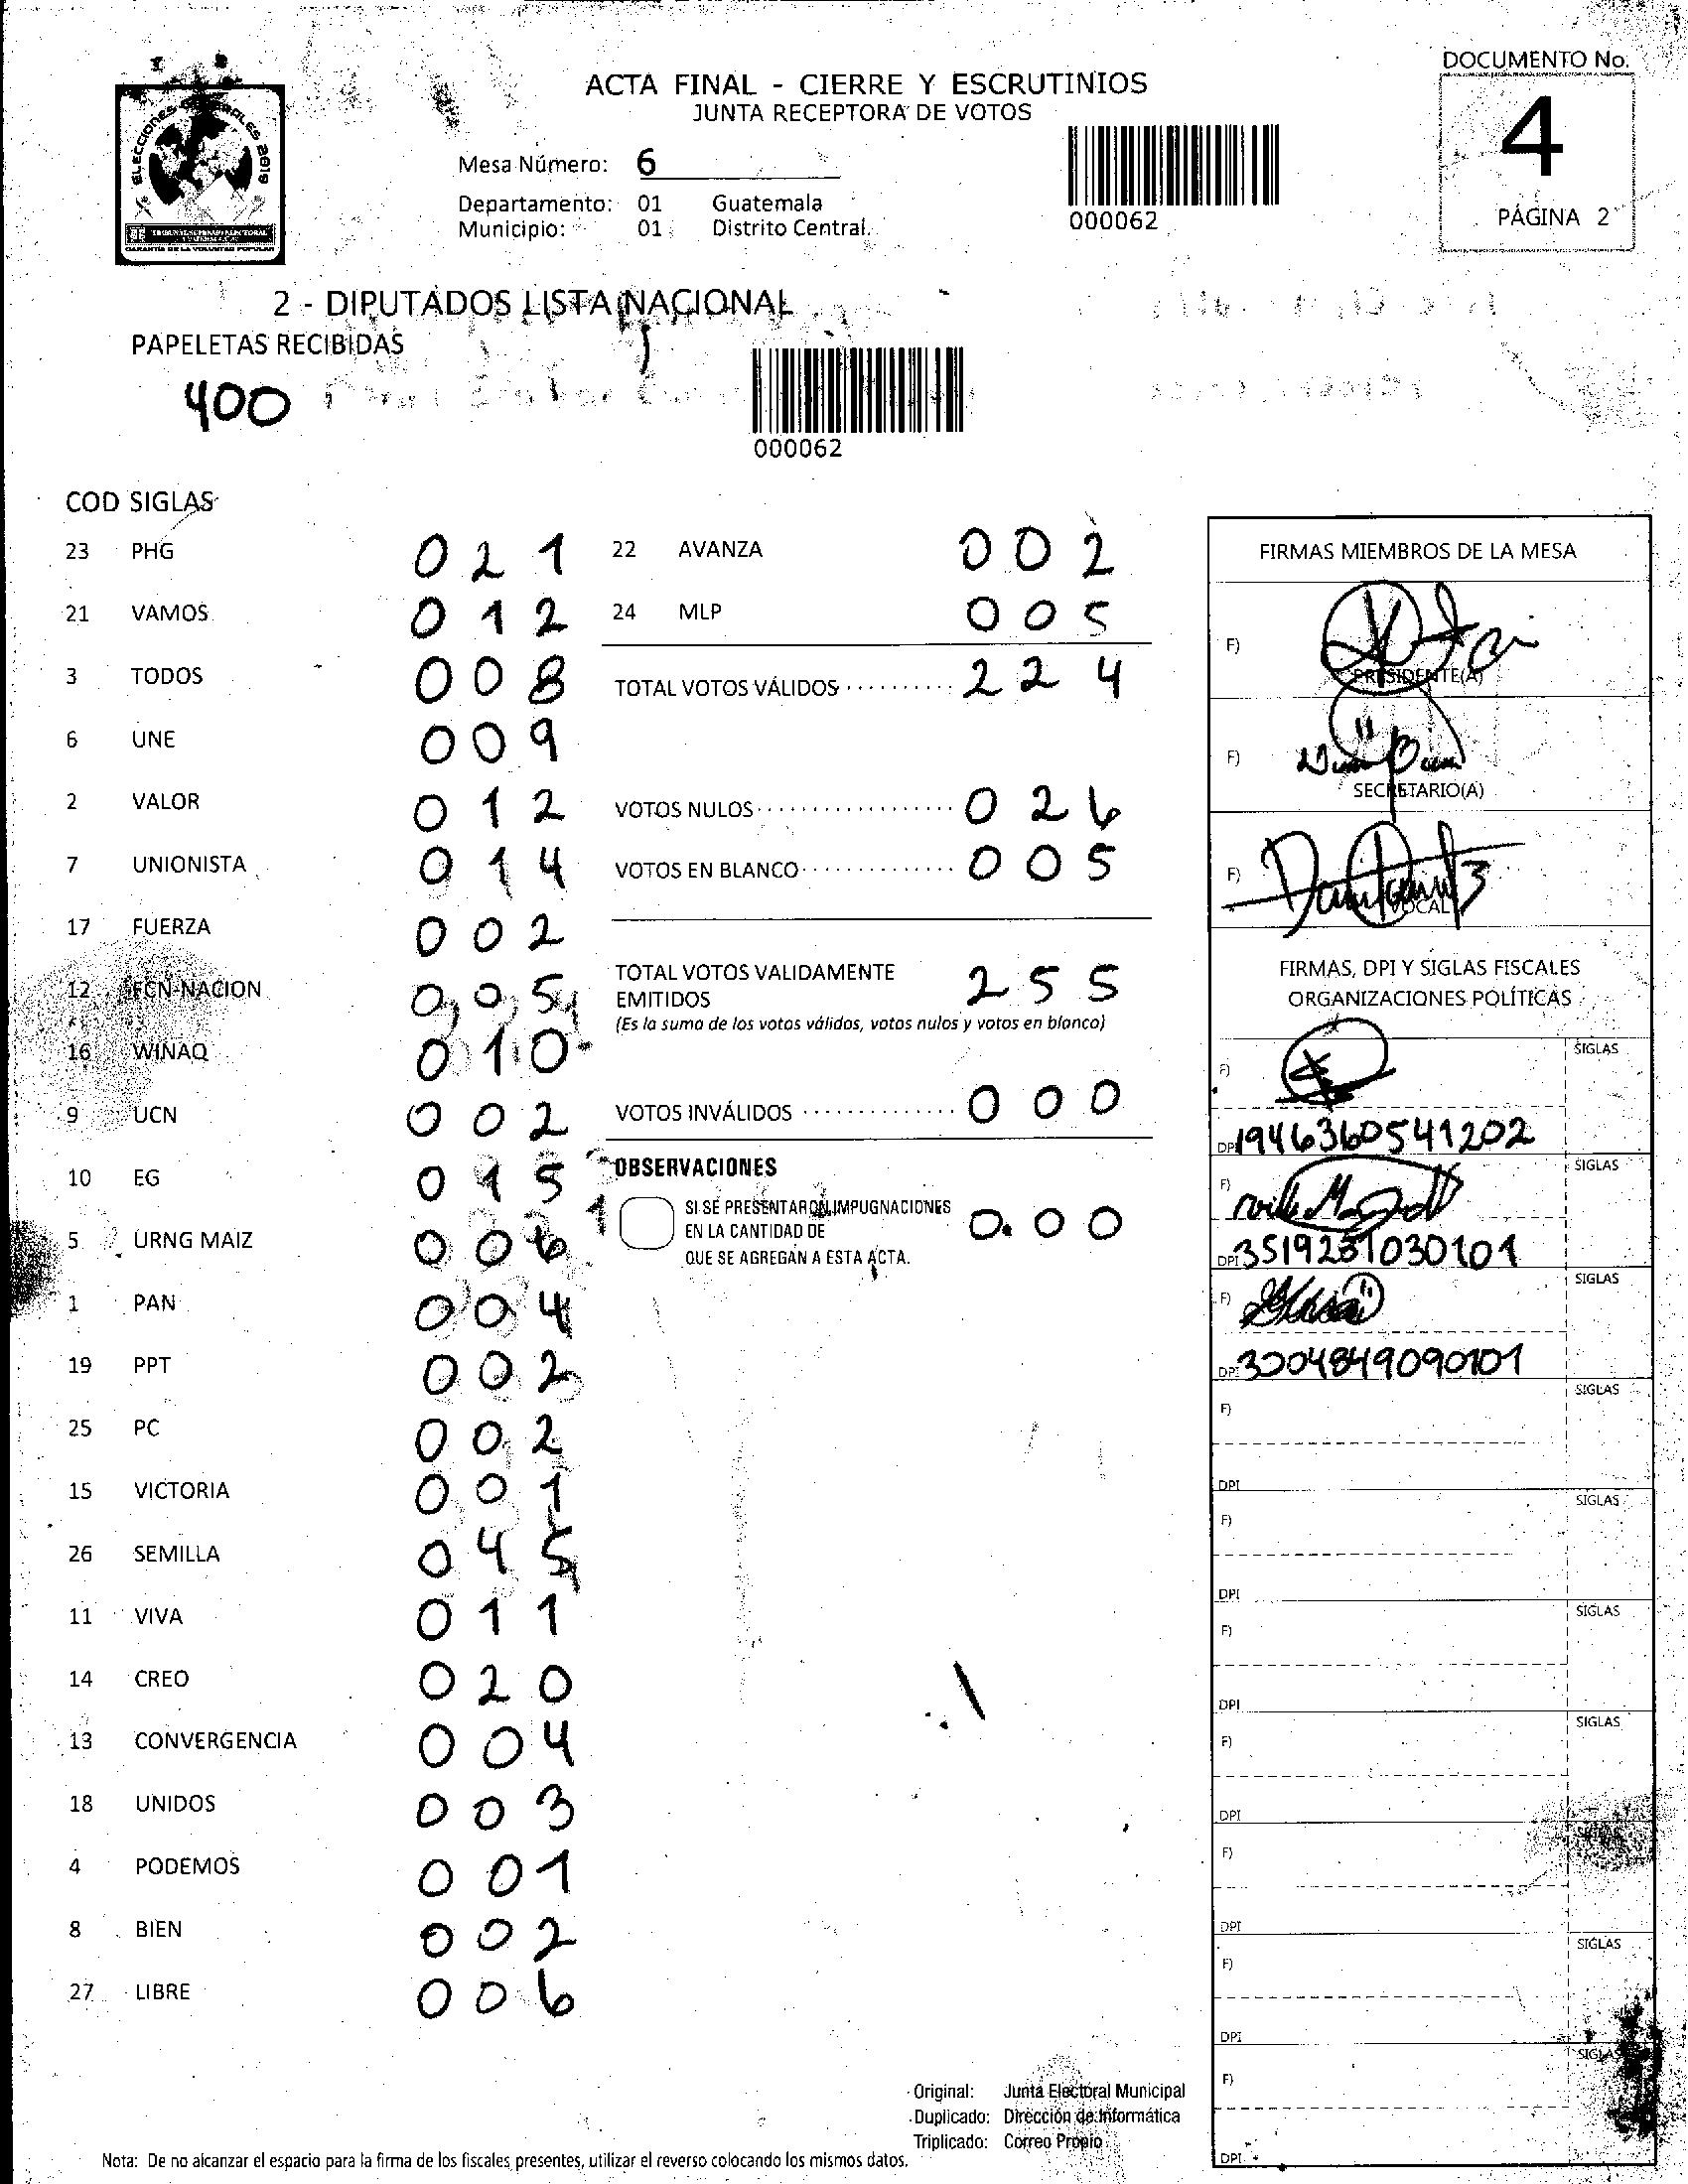 DOCUMENTO No.
4
PÁGINA 2
ELECCIONES GENERALES 2019
ACTA FINAL - CIERRE Y ESCRUTINIOS
JUNTA RECEPTORA DE VOTOS
Mesa Número: 6
Departamento: 01 Guatemala
Municipio: 01 Distrito Central.
000062
2 - DIPUTADOS LISTA NACIONAL
PAPELETAS RECIBIDAS
400
000062
COD SIGLAS
23 PHG 021
21 VAMOS 012
3 TODOS 008
6 UNE 009
2 VALOR 012
7 UNIONISTA 014
17 FUERZA 002
12 FCN-NACION 005
16 WINAQ 010
9 UCN 002
10 EG 015
5 URNG MAIZ 006
1 PAN 004
19 PPT 002
25 PC 002
15 VICTORIA 001
26 SEMILLA 045
11 VIVA 011
14 CREO 020
13 CONVERGENCIA 004
18 UNIDOS 003
4 PODEMOS 001
8 BIEN 002
27 LIBRE 006
22 AVANZA 002
24 MLP 005
TOTAL VOTOS VÁLIDOS .......... 224
VOTOS NULOS .................. 026
VOTOS EN BLANCO .............. 005
TOTAL VOTOS VALIDAMENTE
EMITIDOS 255
(Es la suma de los votos válidos, votos nulos y votos en blanco)
VOTOS INVÁLIDOS .............. 000
OBSERVACIONES
SI SE PRESENTARON IMPUGNACIONES
EN LA CANTIDAD DE 0.00
QUE SE AGREGAN A ESTA ACTA.
FIRMAS MIEMBROS DE LA MESA
F)
PRESIDENTE(A)
F)
SECRETARIO(A)
F)
VOCAL
FIRMAS, DPI Y SIGLAS FISCALES
ORGANIZACIONES POLÍTICAS
F) SIGLAS
DPI 1946360541202
F) SIGLAS
DPI 3519251030101
F) SIGLAS
DPI 3004849090101
F) SIGLAS
DPI
F) SIGLAS
DPI
F) SIGLAS
DPI
F) SIGLAS
DPI
F) SIGLAS
DPI
F) SIGLAS
DPI
F) SIGLAS
DPI
Original: Junta Electoral Municipal
Duplicado: Dirección de Informática
Triplicado: Correo Propio
Nota: De no alcanzar el espacio para la firma de los fiscales presentes, utilizar el reverso colocando los mismos datos.